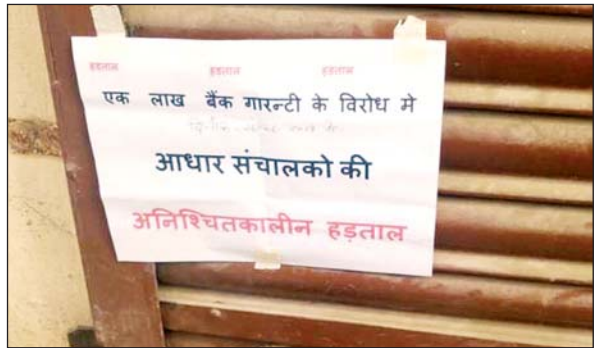 हडताल हडताल हडताल
एक लाख बैंक गारन्टी के विरोध मे
आधार संचालको की
अनिश्चितकालीन हड़ताल